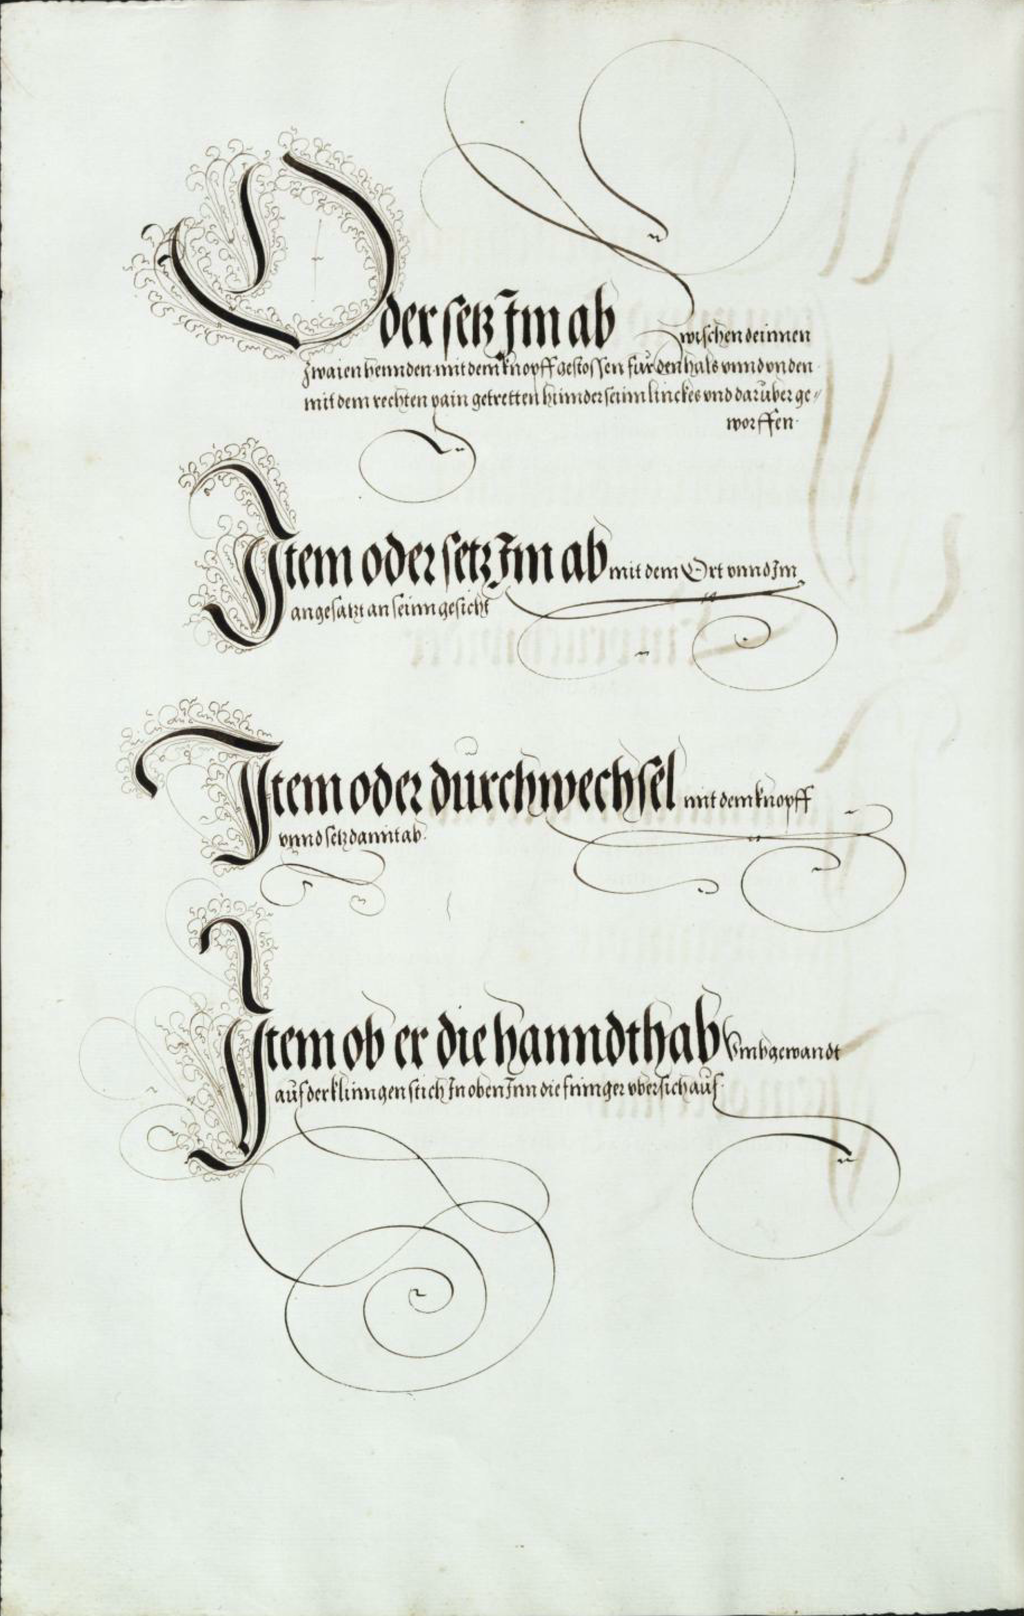 Oder setz Im ab zwischen deinnen
zwaien hennden mit dem knopff gestossen für den hals vnnd vnden
mit dem rechten pain getretten hinnder seinn linckes vnd darüber ge⸗
worffen.
Item oder setz Im ab mit dem Ort vnnd Im
angesatzt an seinn gesicht
Item oder durchwechsel mit dem knopff
vnnd setz damit ab.
Item ob er die hanndt hab Vmbgewandt
auf der klinngen stich In oben Inn die finnger vbersich auf.